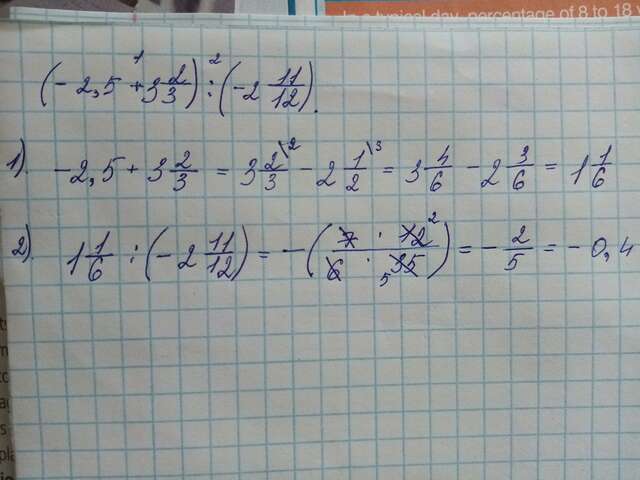 In a typical day, percentage of 8 to 18 y
(-2,5 + 3 2/3) : (-2 11/12).
1 2
1). -2,5 + 3 2/3 = 3 2/3 \2 - 2 1/2 \3 = 3 4/6 - 2 3/6 = 1 1/6
2). 1 1/6 : (-2 11/12) = -(7 · 12 2 / 6 · 35 5) = - 2/5 = -0,4